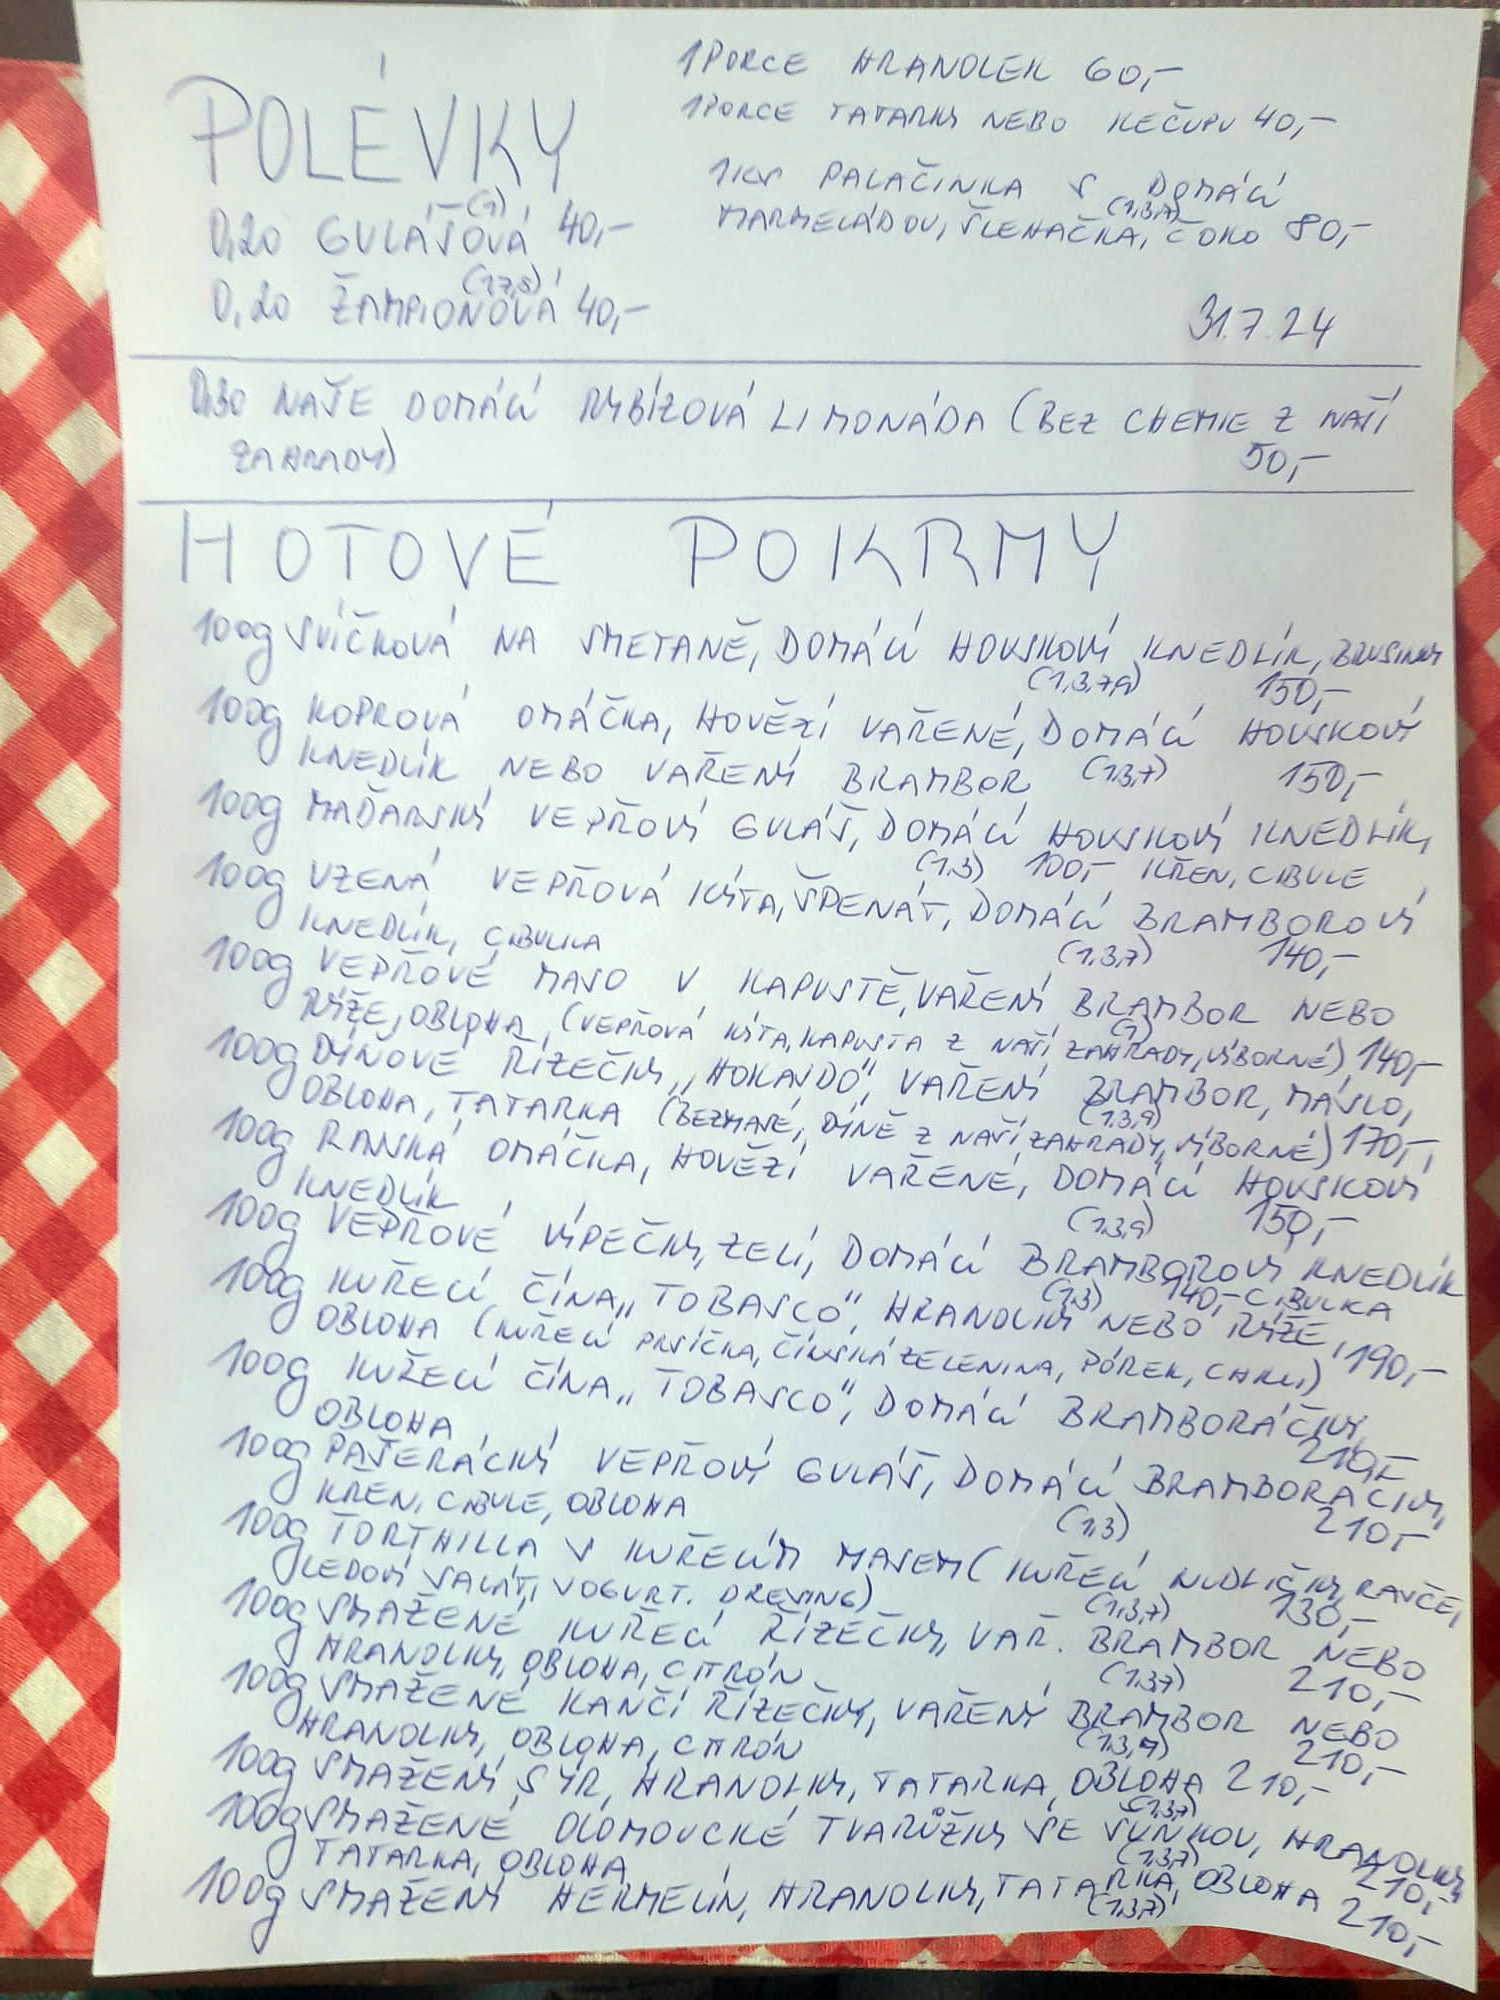 POLÉVKY
0,20 GULÁŠOVÁ (1) 40,-
0,20 ŽAMPIONOVÁ 40,-
1 PORCE HRANOLEK 60,-
1 PORCE TATARKY NEBO KEČUPU 40,-
1KS PALAČINKA S DOMÁCÍ
MARMELÁDOU, ŠLEHAČKA, ČOKO (1,3,7) 80,-
31.7.24
0,30 NAŠE DOMÁCÍ RYBÍZOVÁ LIMONÁDA (BEZ CHEMIE Z NAŠÍ
ZAHRADY) 50,-
HOTOVÉ POKRMY
100g SVÍČKOVÁ NA SMETANĚ, DOMÁCÍ HOUSKOVÝ KNEDLÍK, BRUSINKY
(1,3,7,9) 150,-
100g KOPROVÁ OMÁČKA, HOVĚZÍ VAŘENÉ, DOMÁCÍ HOUSKOVÝ
KNEDLÍK NEBO VAŘENÝ BRAMBOR (1,3,7) 150,-
100g MAĎARSKÝ VEPŘOVÝ GULÁŠ, DOMÁCÍ HOUSKOVÝ KNEDLÍK,
(1,3) 100,- KŘEN, CIBULE
100g UZENÁ VEPŘOVÁ KÝTA, ŠPENÁT, DOMÁCÍ BRAMBOROVÝ
KNEDLÍK, CIBULKA (1,3,7) 140,-
100g VEPŘOVÉ MASO V KAPUSTĚ, VAŘENÝ BRAMBOR NEBO
RÝŽE, OBLOHA, (VEPŘOVÁ KÝTA, KAPUSTA Z NAŠÍ ZAHRADY, VÝBORNÉ) (1) 140,-
100g DÝŇOVÉ ŘÍZEČKY „HOKAJDO", VAŘENÝ BRAMBOR, MÁSLO,
OBLOHA, TATARKA (BEZMASÉ, DÝNĚ Z NAŠÍ ZAHRADY, VÝBORNÉ) 170,-
100g RAJSKÁ OMÁČKA, HOVĚZÍ VAŘENÉ, DOMÁCÍ HOUSKOVÝ
KNEDLÍK (1,3,9) 150,-
100g VEPŘOVÉ VÝPEČKY, ZELÍ, DOMÁCÍ BRAMBOROVÝ KNEDLÍK
(1,3) 140,- CIBULKA
100g KUŘECÍ ČÍNA „TOBASCO", HRANOLKY NEBO RÝŽE,
OBLOHA (KUŘECÍ PRSÍČKA, ČÍNSKÁ ZELENINA, PÓREK, CHILLI) 190,-
100g KUŘECÍ ČÍNA „TOBASCO", DOMÁCÍ BRAMBORÁČKY,
OBLOHA 210,-
100g PAŠERÁCKÝ VEPŘOVÝ GULÁŠ, DOMÁCÍ BRAMBORÁČKY,
KŘEN, CIBULE, OBLOHA (1,3) 210,-
100g TORTHILLA S KUŘECÍM MASEM (KUŘECÍ NUDLIČKY, RAJČE,
LEDOVÝ SALÁT, JOGURT. DRESING) (1,3,7) 130,-
100g SMAŽENÉ KUŘECÍ ŘÍZEČKY, VAŘ. BRAMBOR NEBO
HRANOLKY, OBLOHA, CITRÓN (1,3,7) 210,-
100g SMAŽENÉ KANČÍ ŘÍZEČKY, VAŘENÝ BRAMBOR NEBO
HRANOLKY, OBLOHA, CITRÓN (1,3,7) 210,-
100g SMAŽENÝ SÝR, HRANOLKY, TATARKA, OBLOHA 210,-
(1,3,7)
100g SMAŽENÉ OLOMOUCKÉ TVARŮŽKY SE ŠUNKOU, HRANOLKY
TATARKA, OBLOHA (1,3,7) 210,-
100g SMAŽENÝ HERMELÍN, HRANOLKY, TATARKA, OBLOHA 210,-
(1,3,7)